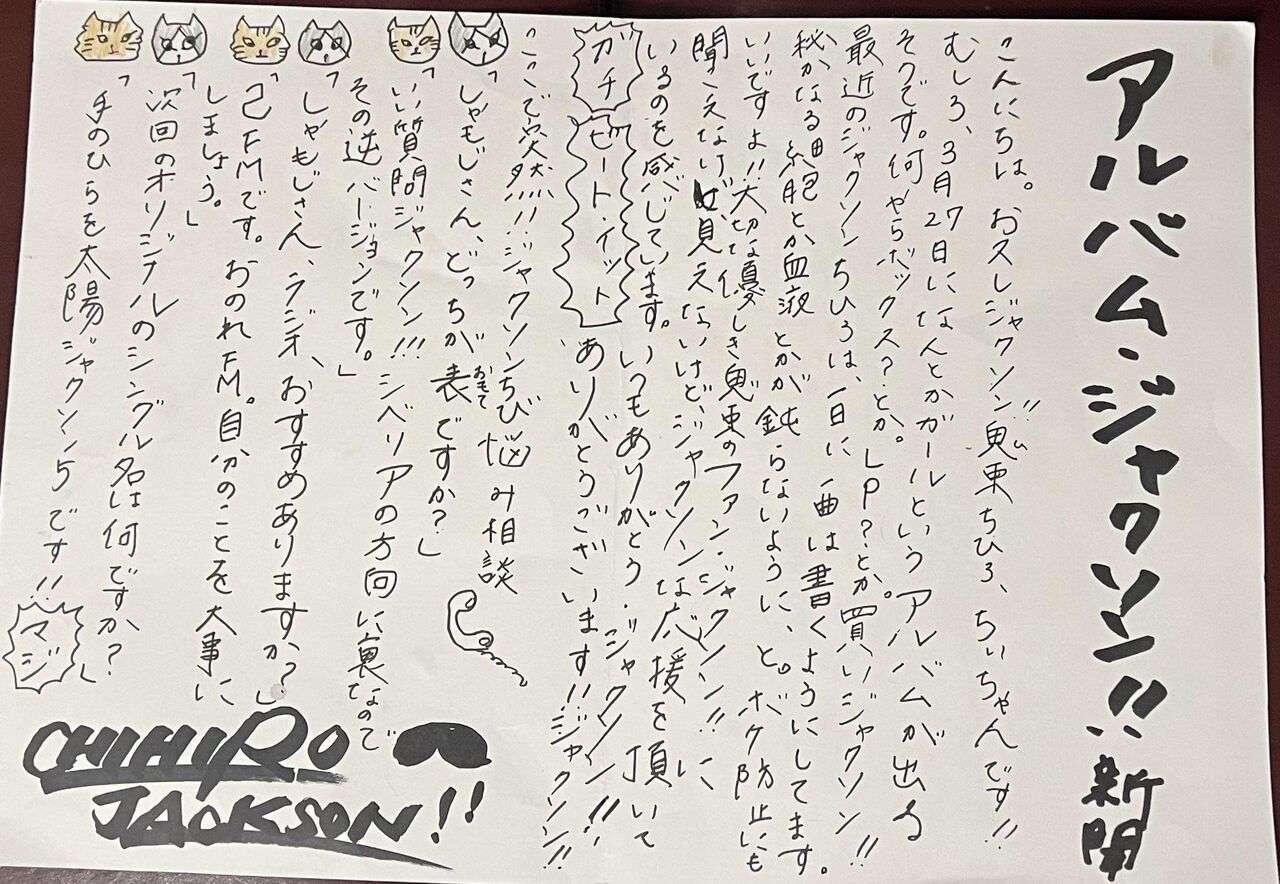 アルバム・ジャクソン!!新聞
こんにちは。おスしジャクソン!!鬼束ちひろ、ちぃちゃんです!!
むしろ、3月27日になんとかガールというアルバムが出る
そうです。何やらボックス?とか。LP?とか。買いジャクソン!!
最近のジャクソンちひろは、一日に一曲は書くようにしてます。
秘かなる細胞とか血液とかが鈍らないように、と。ボケ防止にも
いいですよ!!大切な優しき鬼束のファン・ジャクソン!!に
聞こえないけど、見えないけど、ジャクソンな応援を頂いて
いるのを感じています。いつもありがとう・ジャクソン!!
ガチ
ビート・イット
ありがとうございます!!ジャクソン!!
ここで突然!!!ジャクソンちび悩み相談
「しゃもじさん、どっちが表ですか?」
おもて
「いい質問ジャクソン!!!シベリアの方向に裏なので
その逆バージョンです。」
「しゃもじさん、ラジオ、おすすめありますか?」
「己FMです。おのれFM。自分のことを大事に
しましょう。」
「次回のオリジナルのシングル名は何ですか?」
「手のひらを太陽ジャクソン5です!!」
マジ
CHIHIRO
JACKSON!!